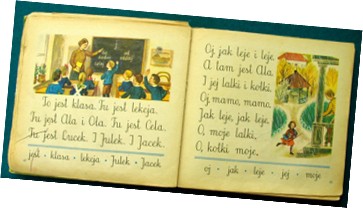 To jest klasa. Tu jest lekcja.
Tu jest Ala i Ola. Tu jest Cela.
Tu jest Lucek. I Julek. I Jacek.
jest • klasa • lekcja • Julek • Jacek
Oj, jak leje i leje.
A tam jest Ala.
I jej lalki i kołki.
Oj, mamo, mamo.
Jak leje, jak leje.
O, moje lalki,
O, kołki moje.
oj • jak • leje • jej • moje